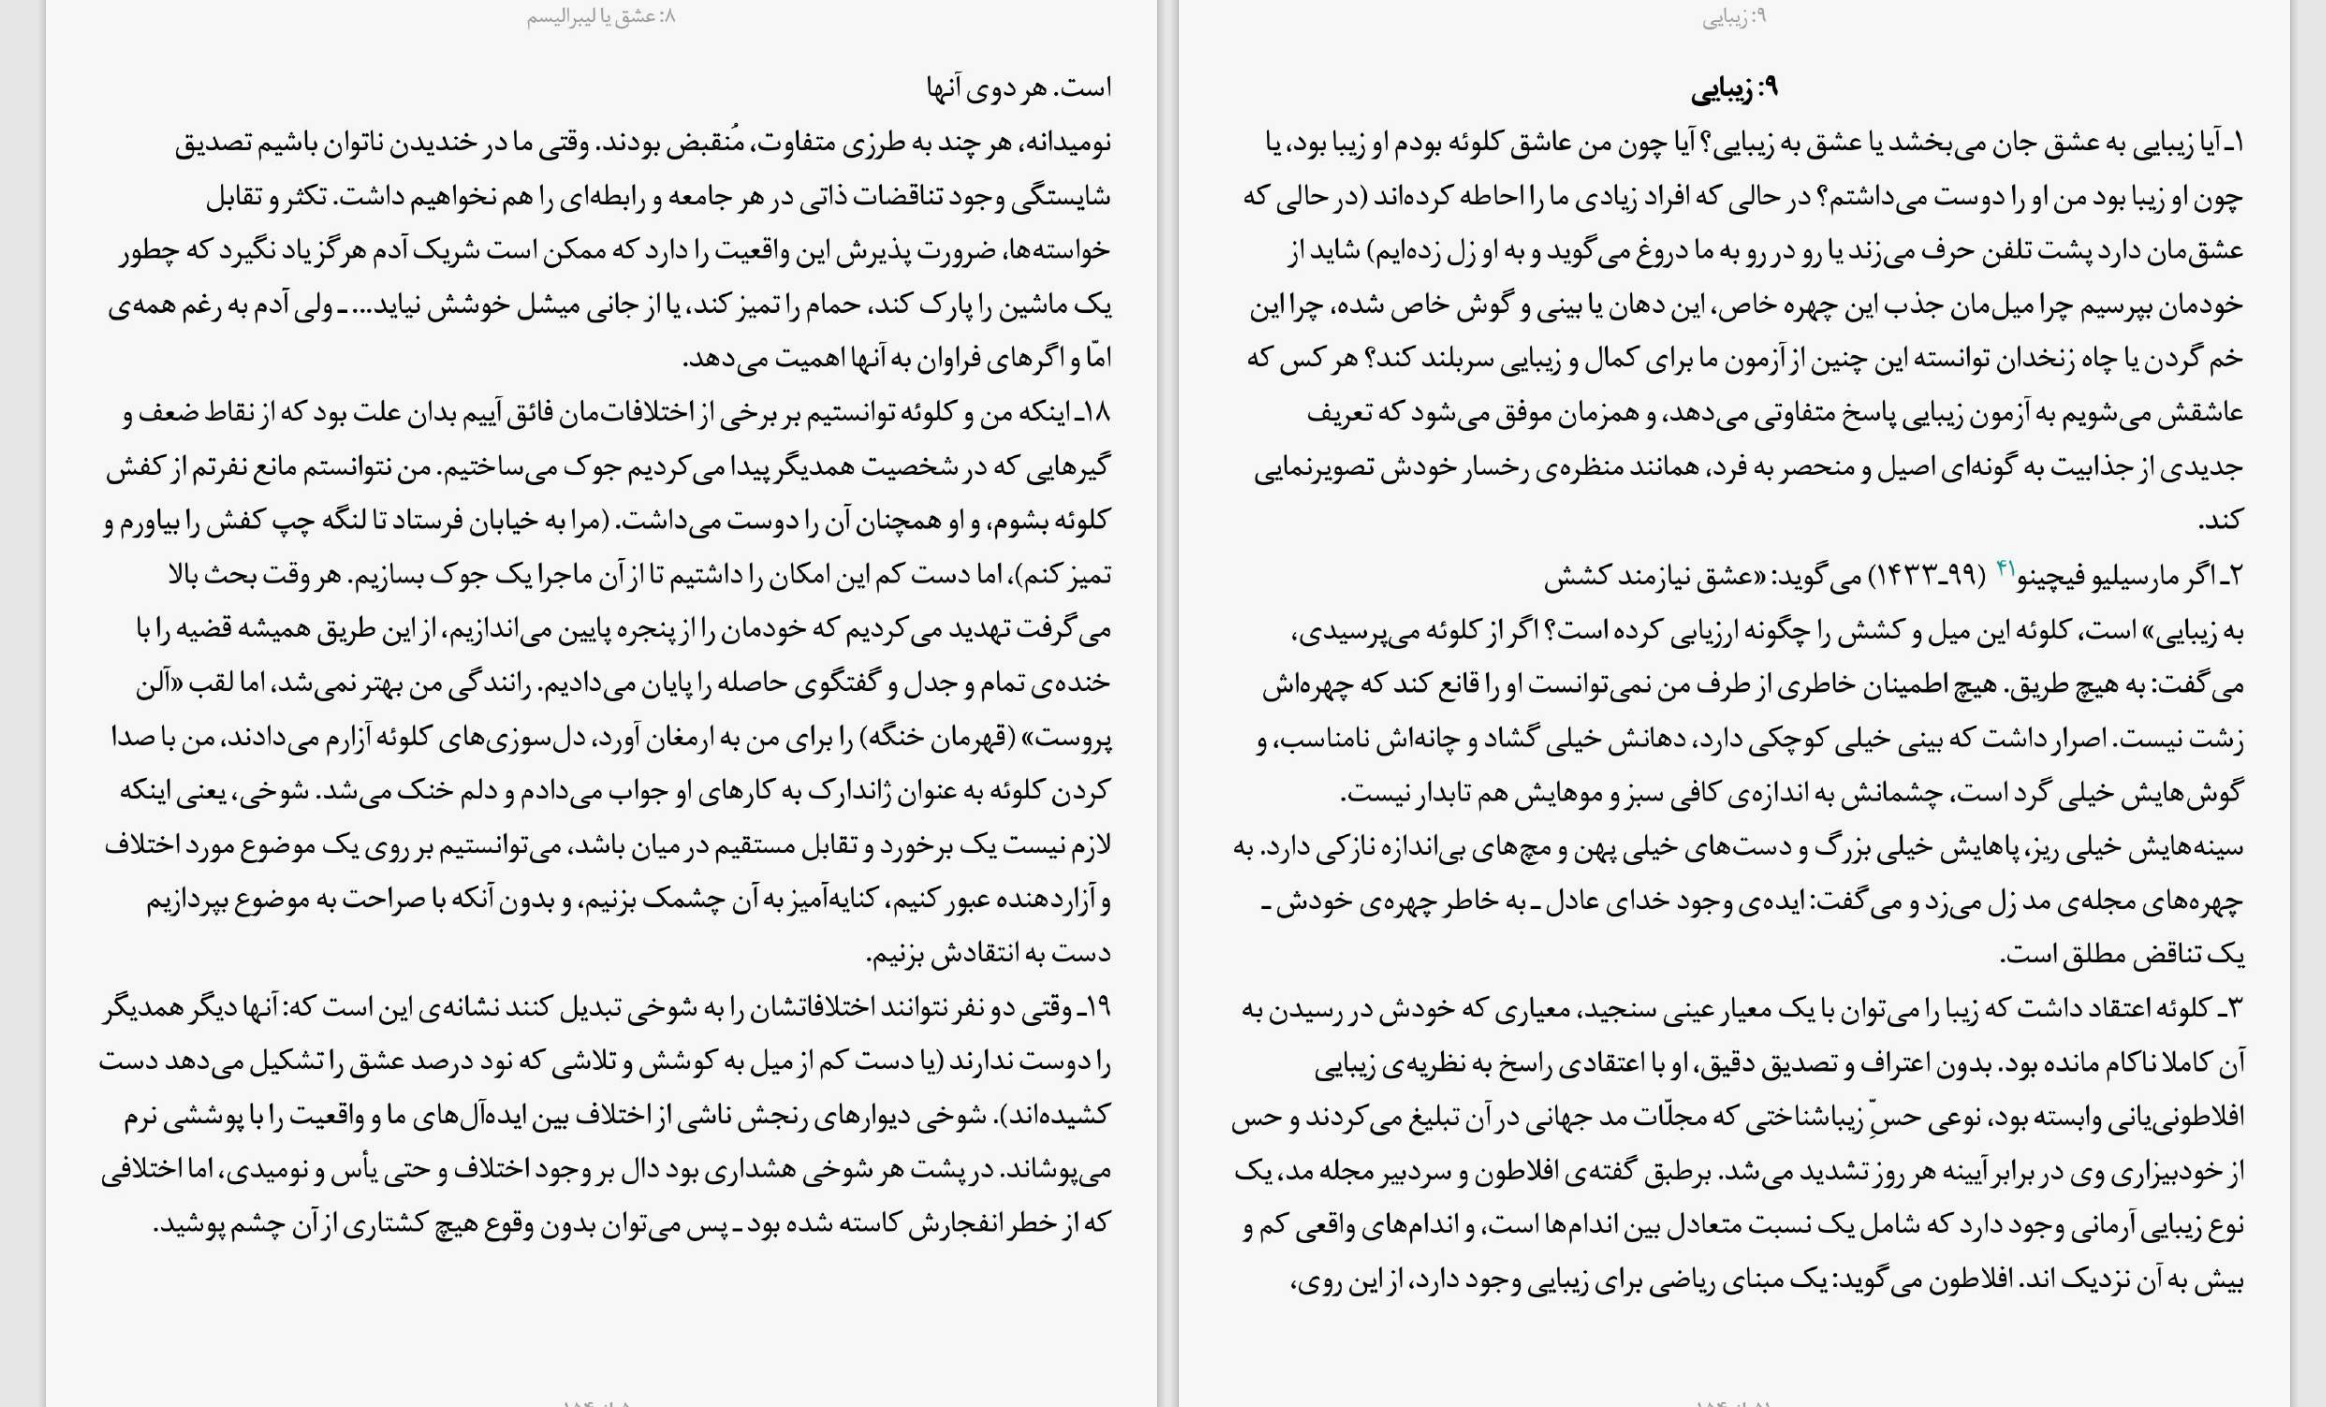 ۸: عشق یا لیبرالیسم
است. هر دوی آنها
نومیدانه، هر چند به طرزی متفاوت، مُنقبض بودند. وقتی ما در خندیدن ناتوان باشیم تصدیق
شایستگی وجود تناقضات ذاتی در هر جامعه و رابطه‌ای را هم نخواهیم داشت. تکثر و تقابل
خواسته‌ها، ضرورت پذیرش این واقعیت را دارد که ممکن است شریک آدم هرگز یاد نگیرد که چطور
یک ماشین را پارک کند، حمام را تمیز کند، یا از جانی میشل خوشش نیاید... ـ ولی آدم به رغم همه‌ی
امّا و اگرهای فراوان به آنها اهمیت می‌دهد.
۱۸ـ اینکه من و کلوئه توانستیم بر برخی از اختلافات‌مان فائق آییم بدان علت بود که از نقاط ضعف و
گیرهایی که در شخصیت همدیگر پیدا می‌کردیم جوک می‌ساختیم. من نتوانستم مانع نفرتم از کفش
کلوئه بشوم، و او همچنان آن را دوست می‌داشت. (مرا به خیابان فرستاد تا لنگه چپ کفش را بیاورم و
تمیز کنم)، اما دست کم این امکان را داشتیم تا از آن ماجرا یک جوک بسازیم. هر وقت بحث بالا
می‌گرفت تهدید می‌کردیم که خودمان را از پنجره پایین می‌اندازیم، از این طریق همیشه قضیه را با
خنده‌ی تمام و جدل و گفتگوی حاصله را پایان می‌دادیم. رانندگی من بهتر نمی‌شد، اما لقب «آلن
پروست» (قهرمان خنگه) را برای من به ارمغان آورد، دل‌سوزی‌های کلوئه آزارم می‌دادند، من با صدا
کردن کلوئه به عنوان ژاندارک به کارهای او جواب می‌دادم و دلم خنک می‌شد. شوخی، یعنی اینکه
لازم نیست یک برخورد و تقابل مستقیم در میان باشد، می‌توانستیم بر روی یک موضوع مورد اختلاف
و آزاردهنده عبور کنیم، کنایه‌آمیز به آن چشمک بزنیم، و بدون آنکه با صراحت به موضوع بپردازیم
دست به انتقادش بزنیم.
۱۹ـ وقتی دو نفر نتوانند اختلافاتشان را به شوخی تبدیل کنند نشانه‌ی این است که: آنها دیگر همدیگر
را دوست ندارند (یا دست کم از میل به کوشش و تلاشی که نود درصد عشق را تشکیل می‌دهد دست
کشیده‌اند). شوخی دیوارهای رنجش ناشی از اختلاف بین ایده‌آل‌های ما و واقعیت را با پوششی نرم
می‌پوشاند. در پشت هر شوخی هشداری بود دال بر وجود اختلاف و حتی یأس و نومیدی، اما اختلافی
که از خطر انفجارش کاسته شده بود ـ پس می‌توان بدون وقوع هیچ کشتاری از آن چشم پوشید.
۹: زیبایی
۹: زیبایی
۱ـ آیا زیبایی به عشق جان می‌بخشد یا عشق به زیبایی؟ آیا چون من عاشق کلوئه بودم او زیبا بود، یا
چون او زیبا بود من او را دوست می‌داشتم؟ در حالی که افراد زیادی ما را احاطه کرده‌اند (در حالی که
عشق‌مان دارد پشت تلفن حرف می‌زند یا رو در رو به ما دروغ می‌گوید و به او زل زده‌ایم) شاید از
خودمان بپرسیم چرا میل‌مان جذب این چهره خاص، این دهان یا بینی و گوش خاص شده، چرا این
خم گردن یا چاه زنخدان توانسته این چنین از آزمون ما برای کمال و زیبایی سربلند کند؟ هر کس که
عاشقش می‌شویم به آزمون زیبایی پاسخ متفاوتی می‌دهد، و همزمان موفق می‌شود که تعریف
جدیدی از جذابیت به گونه‌ای اصیل و منحصر به فرد، همانند منظره‌ی رخسار خودش تصویرنمایی
کند.
۲ـ اگر مارسیلیو فیچینو۴۱ (۹۹ـ۱۴۳۳) می‌گوید: «عشق نیازمند کشش
به زیبایی» است، کلوئه این میل و کشش را چگونه ارزیابی کرده است؟ اگر از کلوئه می‌پرسیدی،
می‌گفت: به هیچ طریق. هیچ اطمینان خاطری از طرف من نمی‌توانست او را قانع کند که چهره‌اش
زشت نیست. اصرار داشت که بینی خیلی کوچکی دارد، دهانش خیلی گشاد و چانه‌اش نامناسب، و
گوش‌هایش خیلی گرد است، چشمانش به اندازه‌ی کافی سبز و موهایش هم تابدار نیست.
سینه‌هایش خیلی ریز، پاهایش خیلی بزرگ و دست‌های خیلی پهن و مچ‌های بی‌اندازه نازکی دارد. به
چهره‌های مجله‌ی مد زل می‌زد و می‌گفت: ایده‌ی وجود خدای عادل ـ به خاطر چهره‌ی خودش ـ
یک تناقض مطلق است.
۳ـ کلوئه اعتقاد داشت که زیبا را می‌توان با یک معیار عینی سنجید، معیاری که خودش در رسیدن به
آن کاملا ناکام مانده بود. بدون اعتراف و تصدیق دقیق، او با اعتقادی راسخ به نظریه‌ی زیبایی
افلاطونی‌یانی وابسته بود، نوعی حسِّ زیباشناختی که مجلّات مد جهانی در آن تبلیغ می‌کردند و حس
از خودبیزاری وی در برابر آیینه هر روز تشدید می‌شد. برطبق گفته‌ی افلاطون و سردبیر مجله مد، یک
نوع زیبایی آرمانی وجود دارد که شامل یک نسبت متعادل بین اندام‌ها است، و اندام‌های واقعی کم و
بیش به آن نزدیک اند. افلاطون می‌گوید: یک مبنای ریاضی برای زیبایی وجود دارد، از این روی،